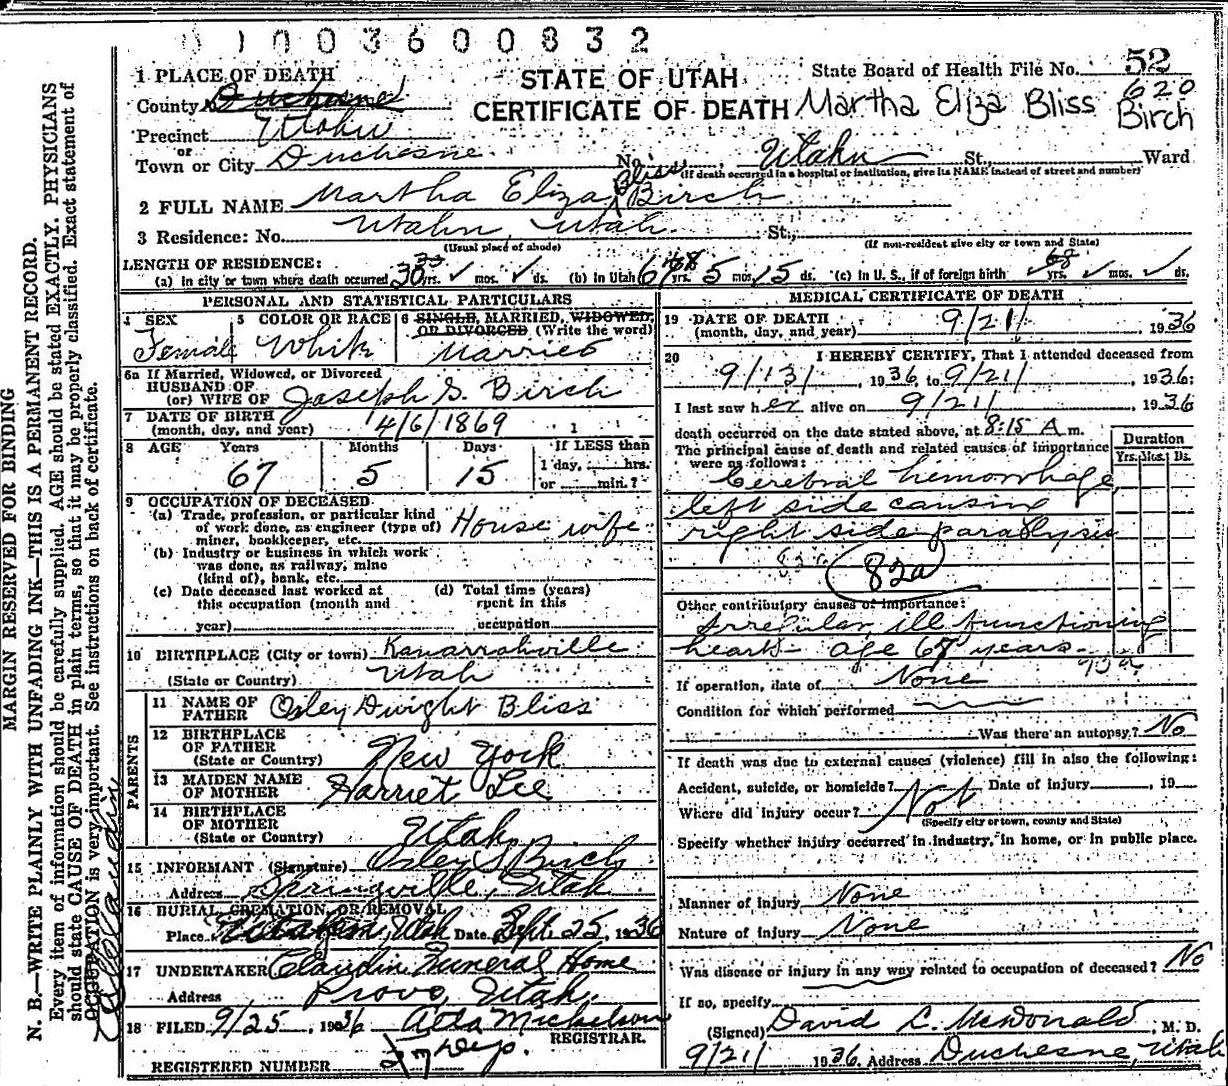 0 1 0 0 3 6 0 0 8 3 2
STATE OF UTAH
CERTIFICATE OF DEATH
State Board of Health File No. 52
620
Martha Eliza Bliss Birch
1 PLACE OF DEATH
County Duchesne
Precinct Utahn
or
Town or City Duchesne No. Utahn St., Ward
(If death occurred in a hospital or institution, give its NAME instead of street and number)
2 FULL NAME Martha Eliza Bliss Birch
3 Residence: No. Utahn, Utah. St.,
(Usual place of abode) (If non-resident give city or town and State)
LENGTH OF RESIDENCE:
(a) In city or town where death occurred 30 yrs. mos. ds. (b) In Utah 67 yrs. 5 mos. 15 ds. (c) In U. S., if of foreign birth 68 yrs. mos. ds.
PERSONAL AND STATISTICAL PARTICULARS
4 SEX 5 COLOR OR RACE 6 SINGLE, MARRIED, WIDOWED, OR DIVORCED (Write the word)
Female White Married
6a If Married, Widowed, or Divorced
HUSBAND OF
(or) WIFE OF Joseph S. Birch
7 DATE OF BIRTH
(month, day, and year) 4/6/1869
8 AGE Years Months Days If LESS than
67 5 15 1 day, hrs.
or min.?
9 OCCUPATION OF DECEASED
(a) Trade, profession, or particular kind
of work done, as engineer (type of)
miner, bookkeeper, etc. House wife
(b) Industry or business in which work
was done, as railway, mine
(kind of), bank, etc.
(c) Date deceased last worked at
this occupation (month and
year)
(d) Total time (years)
spent in this
occupation
10 BIRTHPLACE (City or town) Kanarrahville
(State or Country) Utah
PARENTS
11 NAME OF
FATHER Orley Dwight Bliss
12 BIRTHPLACE
OF FATHER
(State or Country) New York
13 MAIDEN NAME
OF MOTHER Harriet Lee
14 BIRTHPLACE
OF MOTHER
(State or Country) Utah
15 INFORMANT (Signature) Orley S. Birch
Address Springville, Utah
16 BURIAL, CREMATION, OR REMOVAL
Place Utah Date Sept. 25, 1936
17 UNDERTAKER Claudin Funeral Home
Address Provo, Utah,
18 FILED 9/25, 1936 Atla Mickelson
REGISTRAR.
Dep.
REGISTERED NUMBER
MEDICAL CERTIFICATE OF DEATH
19 DATE OF DEATH
(month, day, and year) 9/21/ 1936
20 I HEREBY CERTIFY, That I attended deceased from
9/13/, 1936 to 9/21/, 1936;
I last saw her alive on 9/21/ 1936
death occurred on the date stated above, at 8:15 A m.
The principal cause of death and related causes of importance
were as follows:
Duration
Yrs. Mos. Ds.
Cerebral hemorrhage,
left side causing
right side paralysis
82a
Other contributory causes of importance:
Irregular, ill functioning
heart- age 67 years.
If operation, date of None
Condition for which performed
Was there an autopsy? No
If death was due to external causes (violence) fill in also the following:
Accident, suicide, or homicide? Not Date of injury, 19
Where did injury occur?
(Specify city or town, county and State)
Specify whether injury occurred in industry, in home, or in public place.
Manner of Injury None
Nature of Injury None
Was disease or injury in any way related to occupation of deceased? No
If so, specify
(Signed) David L. McDonald, M. D.
9/21/ 1936. Address Duchesne, Utah
MARGIN RESERVED FOR BINDING
N. B.—WRITE PLAINLY WITH UNFADING INK—THIS IS A PERMANENT RECORD.
Every item of information should be carefully supplied. AGE should be stated EXACTLY. PHYSICIANS
should state CAUSE OF DEATH in plain terms, so that it may be properly classified. Exact statement of
OCCUPATION is very important. See instructions on back of certificate.